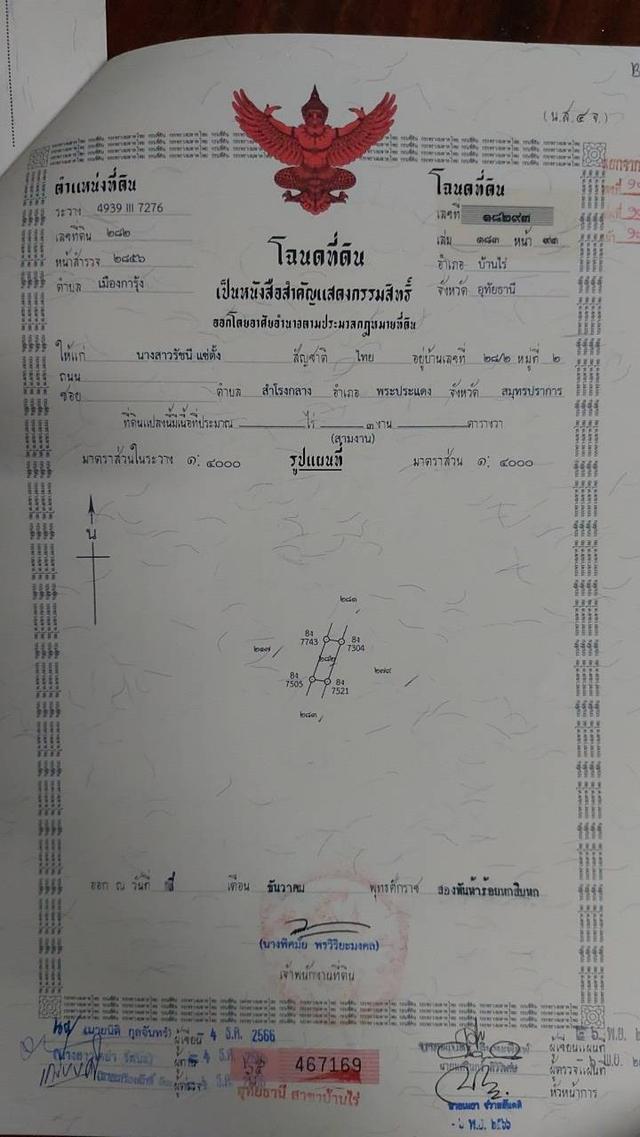 (น.ส.๔ จ.)
ตำแหน่งที่ดิน
ระวาง 4939 III 7276
เลขที่ดิน ๒๘๒
หน้าสำรวจ ๒๘๕๖
ตำบล เมืองการุ้ง
โฉนดที่ดิน
เลขที่ ๑๘๒๙๓
เล่ม ๑๘๓ หน้า ๙๓
อำเภอ บ้านไร่
จังหวัด อุทัยธานี
โฉนดที่ดิน
เป็นหนังสือสำคัญแสดงกรรมสิทธิ์
ออกโดยอาศัยอำนาจตามประมวลกฎหมายที่ดิน
ให้แก่ นางสาวรัชนี แซ่ตั้ง สัญชาติ ไทย อยู่บ้านเลขที่ ๒๘/๒ หมู่ที่ ๒
ถนน
ซอย ตำบล สำโรงกลาง อำเภอ พระประแดง จังหวัด สมุทรปราการ
ที่ดินแปลงนี้มีเนื้อที่ประมาณ ไร่ ๓ งาน ตารางวา
(สามงาน)
มาตราส่วนในระวาง ๑: ๔๐๐๐ รูปแผนที่ มาตราส่วน ๑: ๔๐๐๐
น
๒๘๑
8ง 7743
8ง 7304
๒๘๒
8ง 7505
8ง 7521
๒๘๓
ออก ณ วันที่ สี่ เดือน ธันวาคม พุทธศักราช สองพันห้าร้อยหกสิบหก
(นางพิศมัย พรวิริยะมงคล)
เจ้าพนักงานที่ดิน
ผู้เขียน 4 ธ.ค. 2566
467169
อุทัยธานี สาขาบ้านไร่
ผู้เขียนแผนที่
ผู้ตรวจแผนที่
หัวหน้าการ